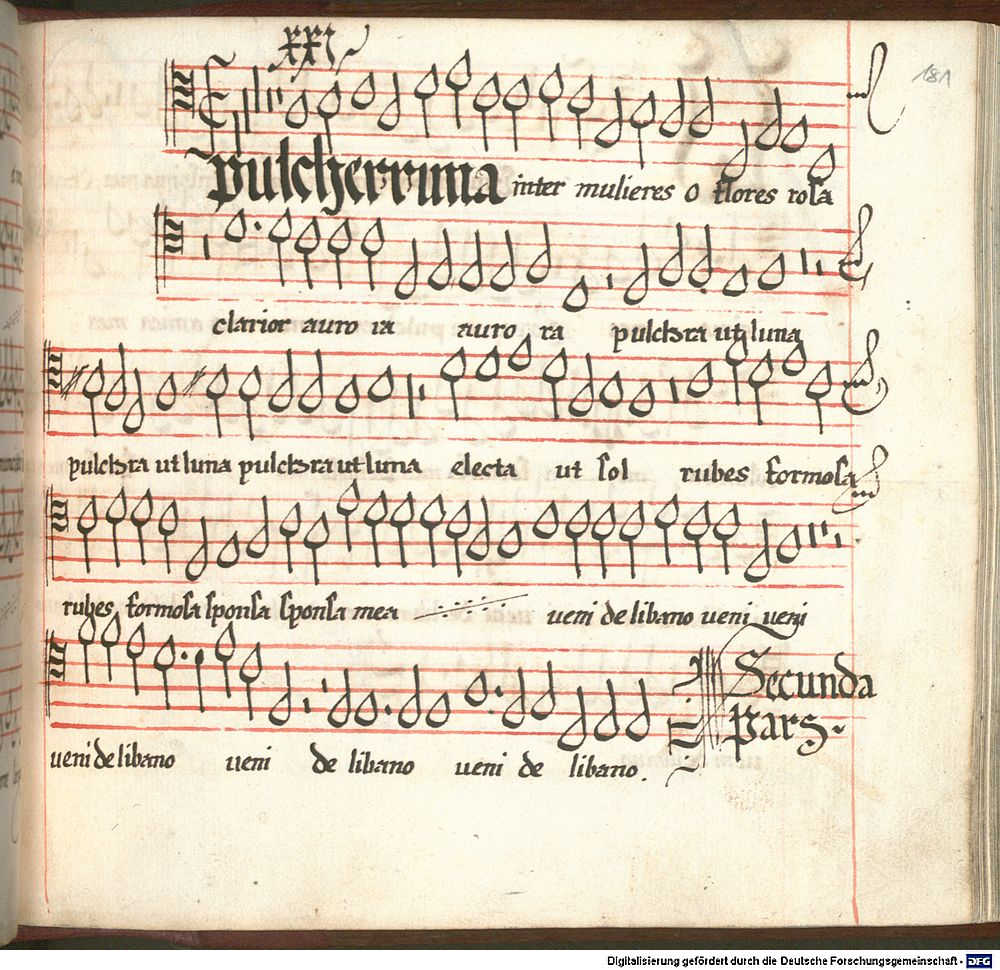 xxi
181
pulcherrima inter mulieres o flores rosa
clarior auro ra auro ra pulchra ut luna
pulchra ut luna pulchra ut luna electa ut sol rubes formosa
rubes formosa sponsa sponsa mea veni de libano veni veni
veni de libano veni de libano veni de libano.
Secunda
Pars.
Digitalisierung gefördert durch die Deutsche Forschungsgemeinschaft - DFG